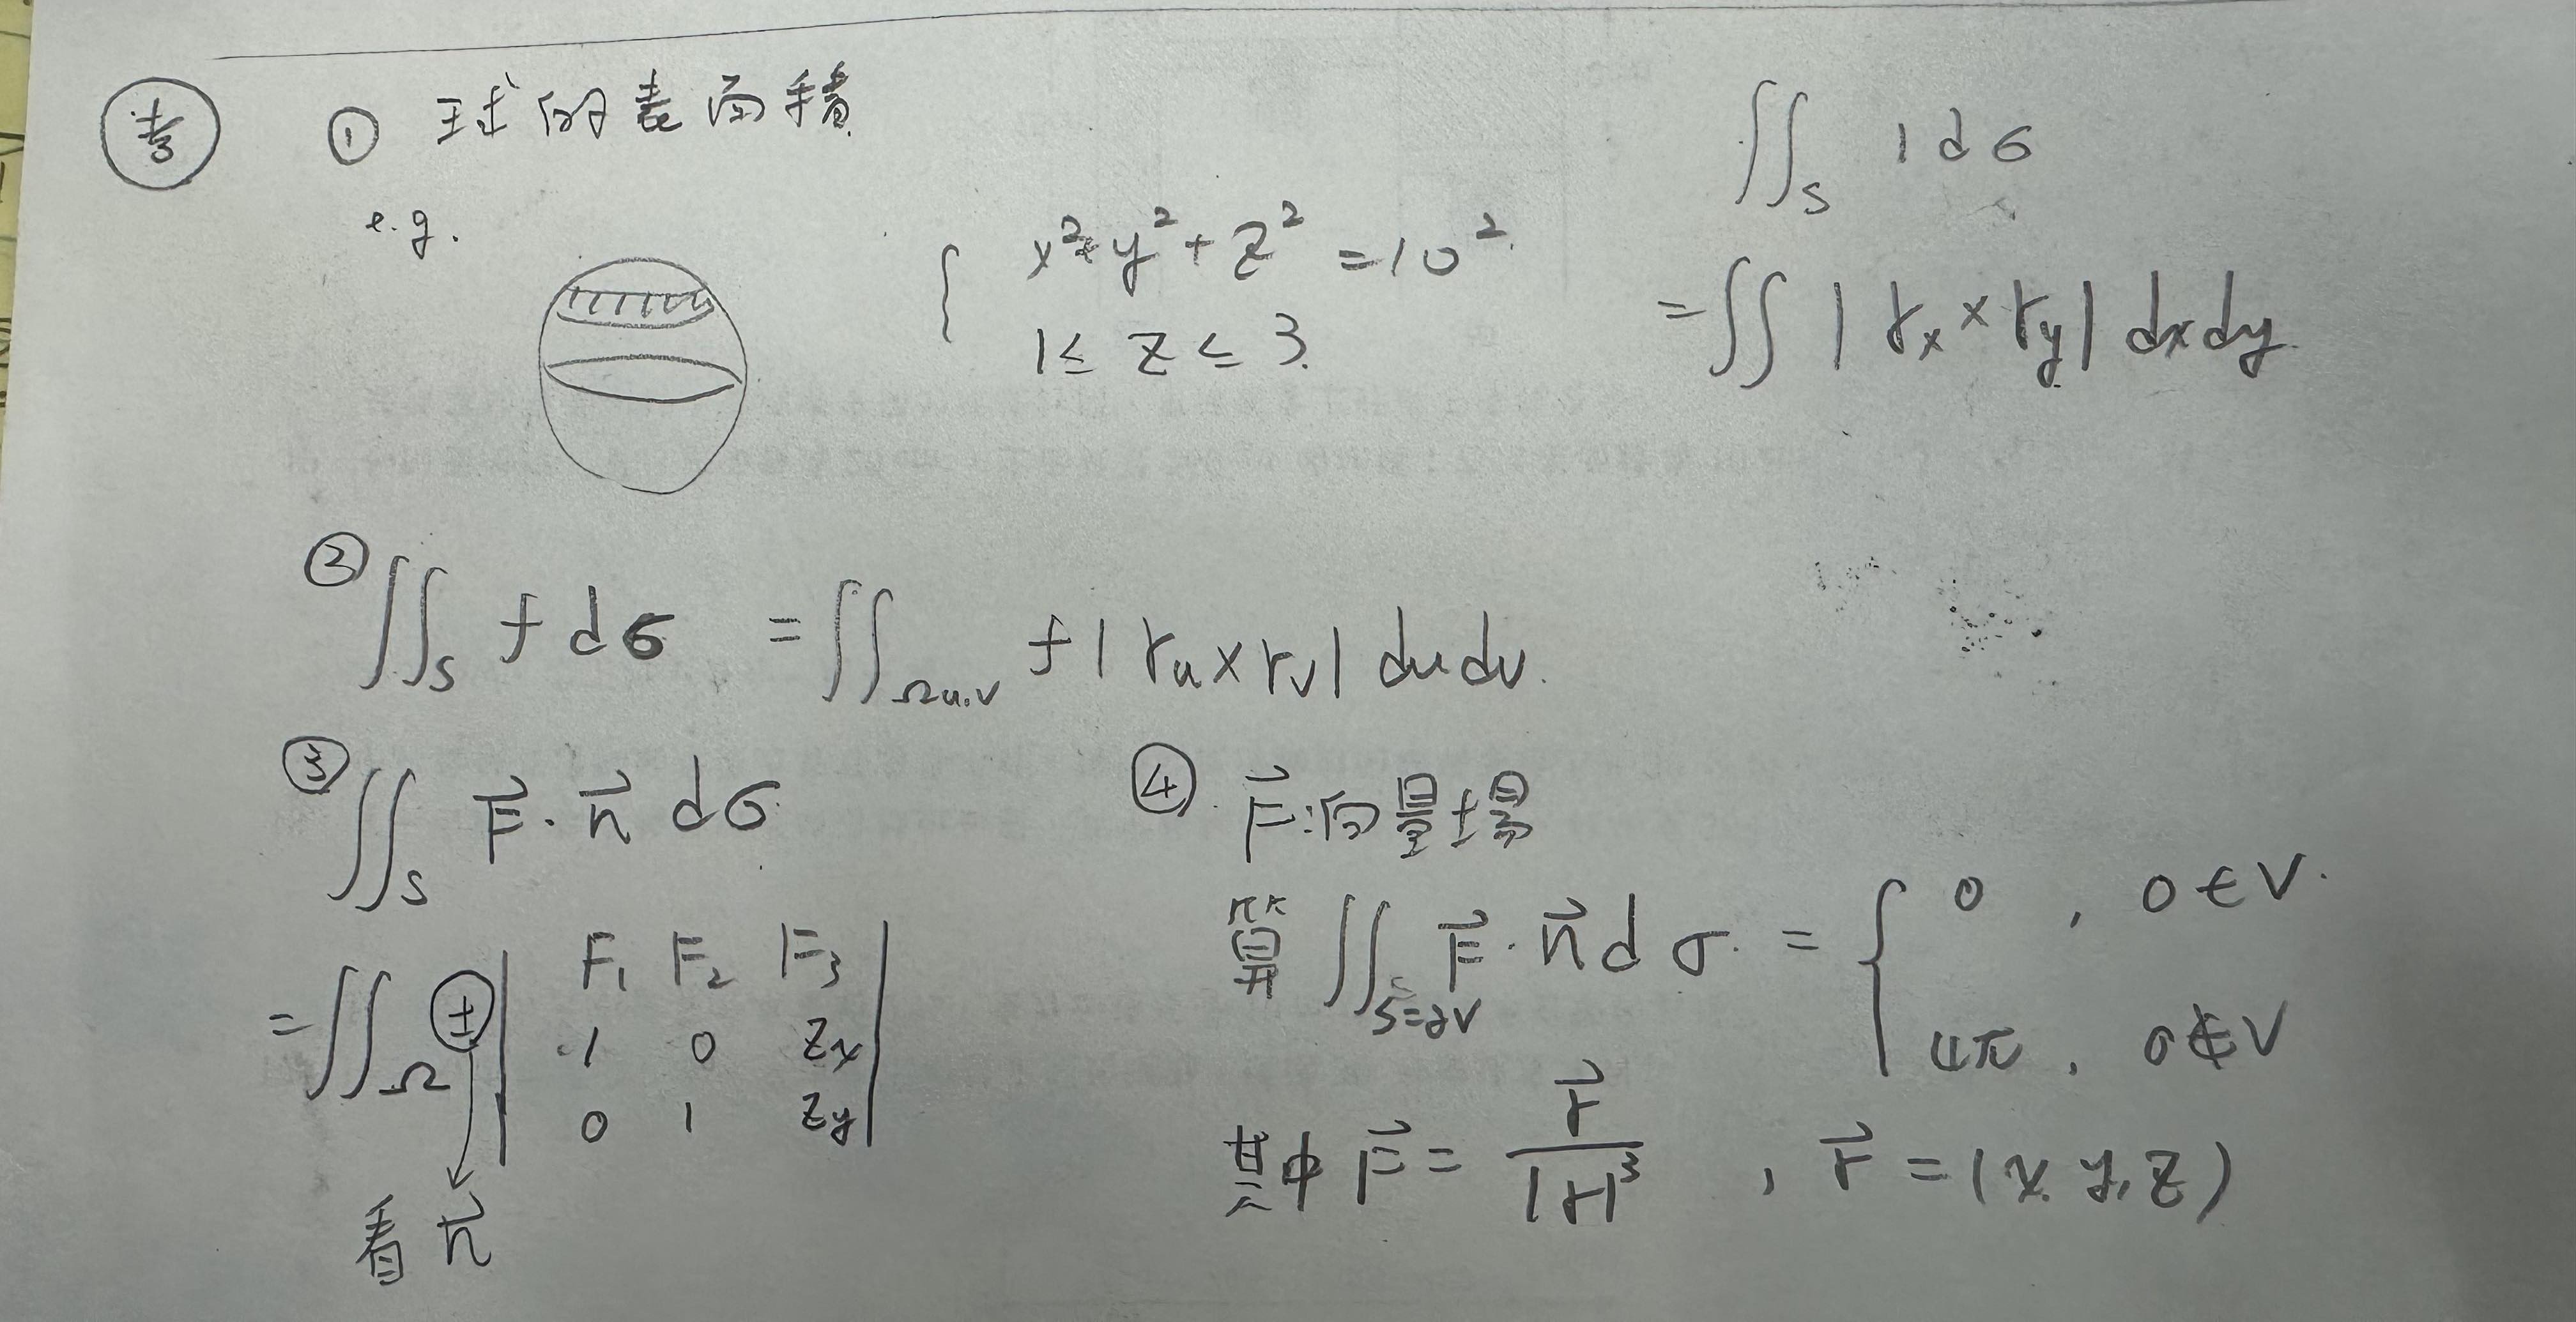 考 ① 球的表面積
e.g.
{ x²+y²+z²=10²
1≤z≤3.
∬_S 1 dσ
=∬ |r_x × r_y| dxdy.
② ∬_S f dσ = ∬_Ωu,v f |r_u × r_v| du dv.
③ ∬_S F⃗·n⃗ dσ
=∬_Ω ± | F₁ F₂ F₃
1 0 z_x
0 1 z_y |
看 n⃗
④ F⃗:向量場
算 ∬_S=∂V F⃗·n⃗ dσ = { 0 , 0∈V.
4π , 0∉V
其中 F⃗ = r⃗/|r|³ , r⃗=(x,y,z)